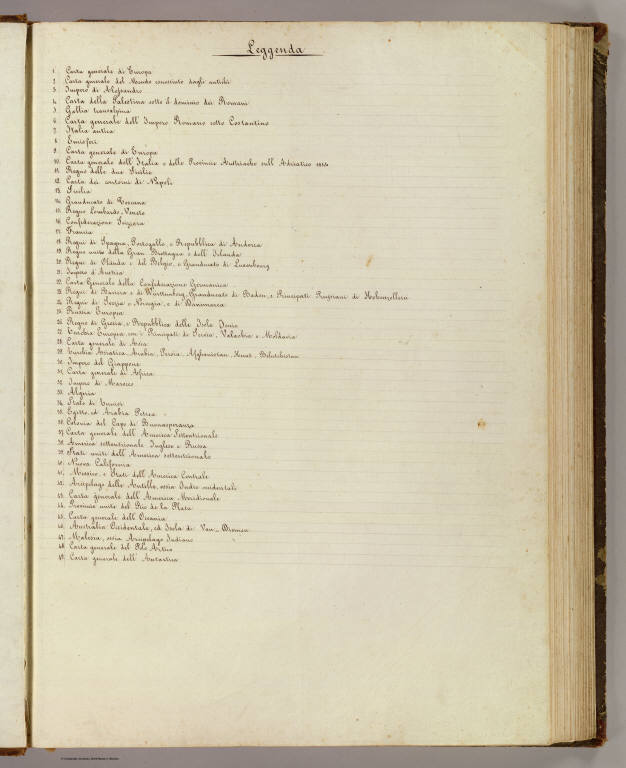 Leggenda
1. Carta generale di Europa
2. Carta generale del Mondo conosciuto dagli antichi
3. Impero di Alessandro
4. Carta della Palestina sotto il dominio dei Romani
5. Gallia transalpina
6. Carta generale dell'Impero Romano sotto Costantino
7. Italia antica
8. Emisferi
9. Carta generale di Europa
10. Carta generale dell'Italia e delle Provincie Austriache sull'Adriatico
11. Regno delle due Sicilie
12. Carta dei contorni di Napoli
13. Sicilia
14. Granducato di Toscana
15. Regno Lombardo-Veneto
16. Confederazione Svizzera
17. Francia
18. Regni di Spagna, Portogallo, e Repubblica di Andorra
19. Regno unito della Gran Brettagna e dell'Irlanda
20. Regni di Olanda e del Belgio, e Granducato di Luxembourg
21. Impero d'Austria
22. Carta Generale della Confederazione Germanica
23. Regni di Baviera e di Württemberg, Granducato di Baden, e Principati Prussiani di Hohenzollern
24. Regni di Svezia e Norvegia, e di Danimarca
25. Russia Europea
26. Regno di Grecia, e Repubblica delle Isole Jonie
27. Turchia Europea con i Principati di Servia, Valachia e Moldavia
28. Carta generale di Asia
29. Turchia Asiatica, Arabia, Persia, Afghanistan, Herat, Belutchistan
30. Impero del Giappone
31. Carta generale di Africa
32. Impero di Marocco
33. Algeria
34. Stato di Tunisi
35. Egitto, ed Arabia Petrea
36. Colonia del Capo di Buonasperanza
37. Carta generale dell'America Settentrionale
38. America settentrionale Inglese e Russa
39. Stati uniti dell'America settentrionale
40. Nuova California
41. Messico, e Stati dell'America Centrale
42. Arcipelago delle Antille, ossia Indie occidentali
43. Carta generale dell'America Meridionale
44. Provincie unite del Rio de la Plata
45. Carta generale dell'Oceania
46. Australia Occidentale, ed Isola di Van-Diemen
47. Malesia, ossia Arcipelago Indiano
48. Carta generale del Polo Artico
49. Carta generale dell'Antartico